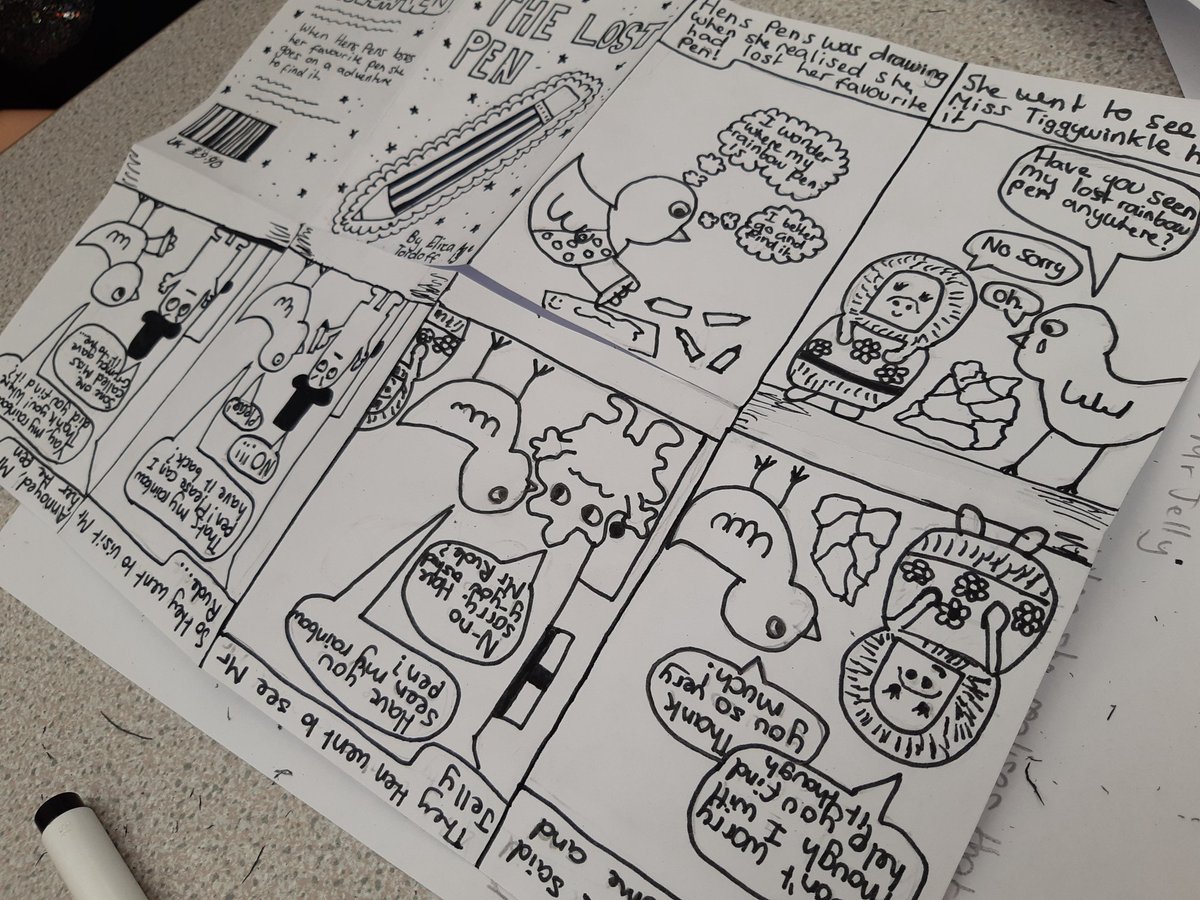 When Hens Pens loses
her favourite pen she
goes on a adventure
to find it.
UK £9.98
THE LOST
PEN
By Eliza
Totdoff
Hens Pens was drawing
when she realised she
had lost her favourite
pen!
I wonder
where my
rainbow pen
is
I better
go and
find it.
She went to see
Miss Tiggywinkle
it
Have you seen
my lost rainbow
pen anywhere?
No sorry
Oh
said
ome and
Don't worry
though I will
help you find
it though
Thank
you so very
much!
They Hen went to see Mr
Jelly
Have you
seen my rainbow
pen?
N-no
sorry. Have
y-you asked
Mr Rude?
So Hey went to visit Mr
Rude...
That's my rainbow
pen! Please can I
have it back?
No!!!
Please
Annoyed Mr
her the pen
Yay, my rainbow
Thank you where
did you find it?
Some one
called Miss
gave
it to me
Mr Jelly.